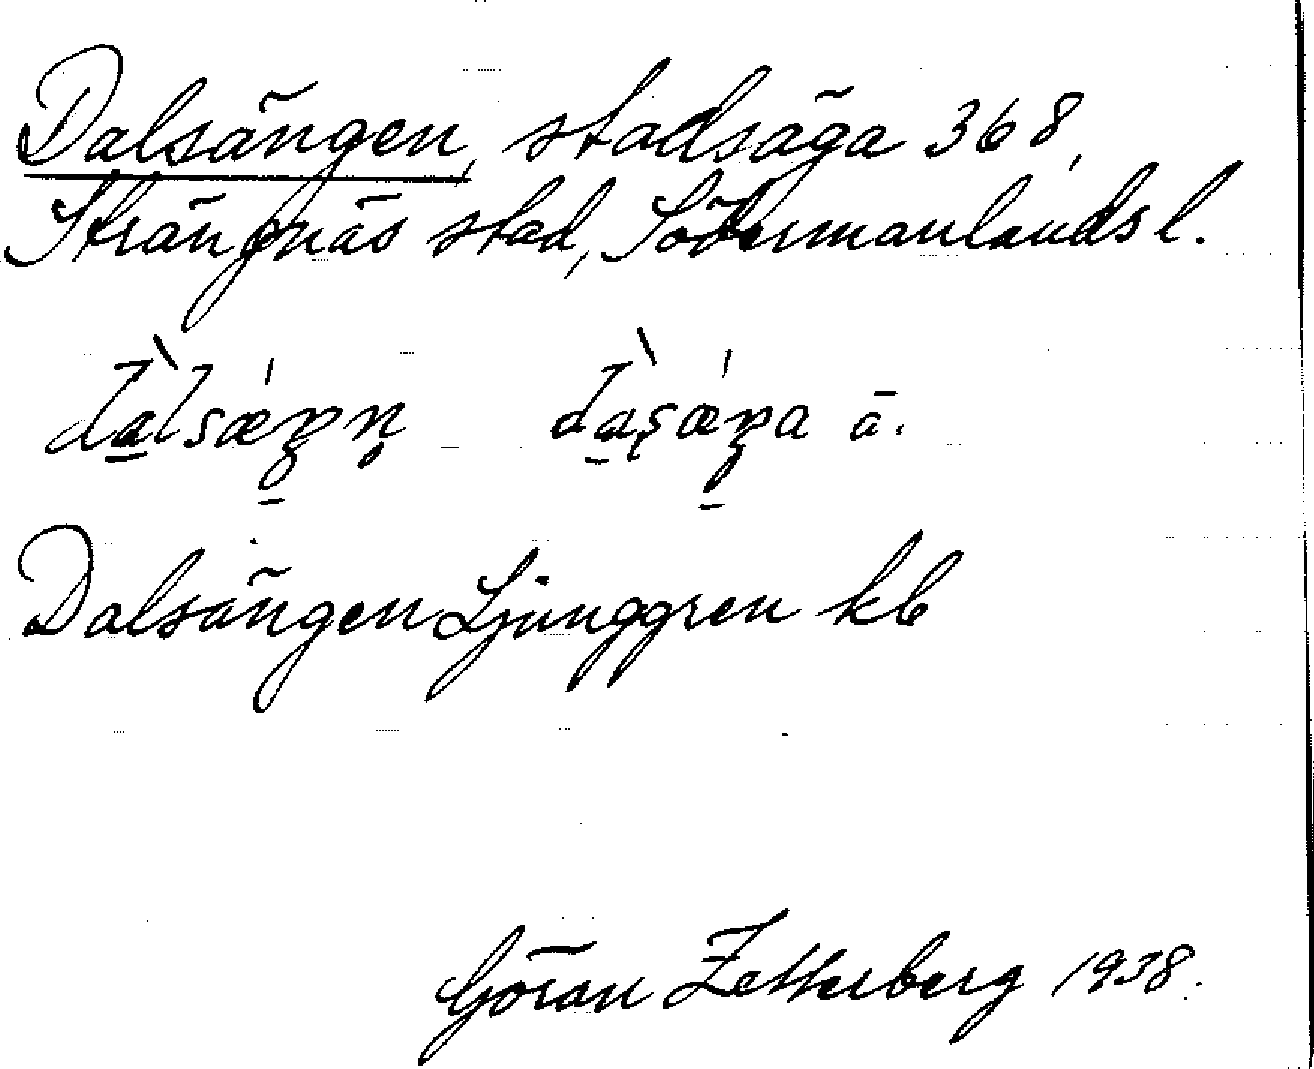 Dalsängen, stadsäga 368,
Strängnäs stad, Södermanlands l.
dàlsǽŋn̥ dàʂǽŋa ä.
Dalsängen Ljunggren kb
Göran Zetterberg 1938.